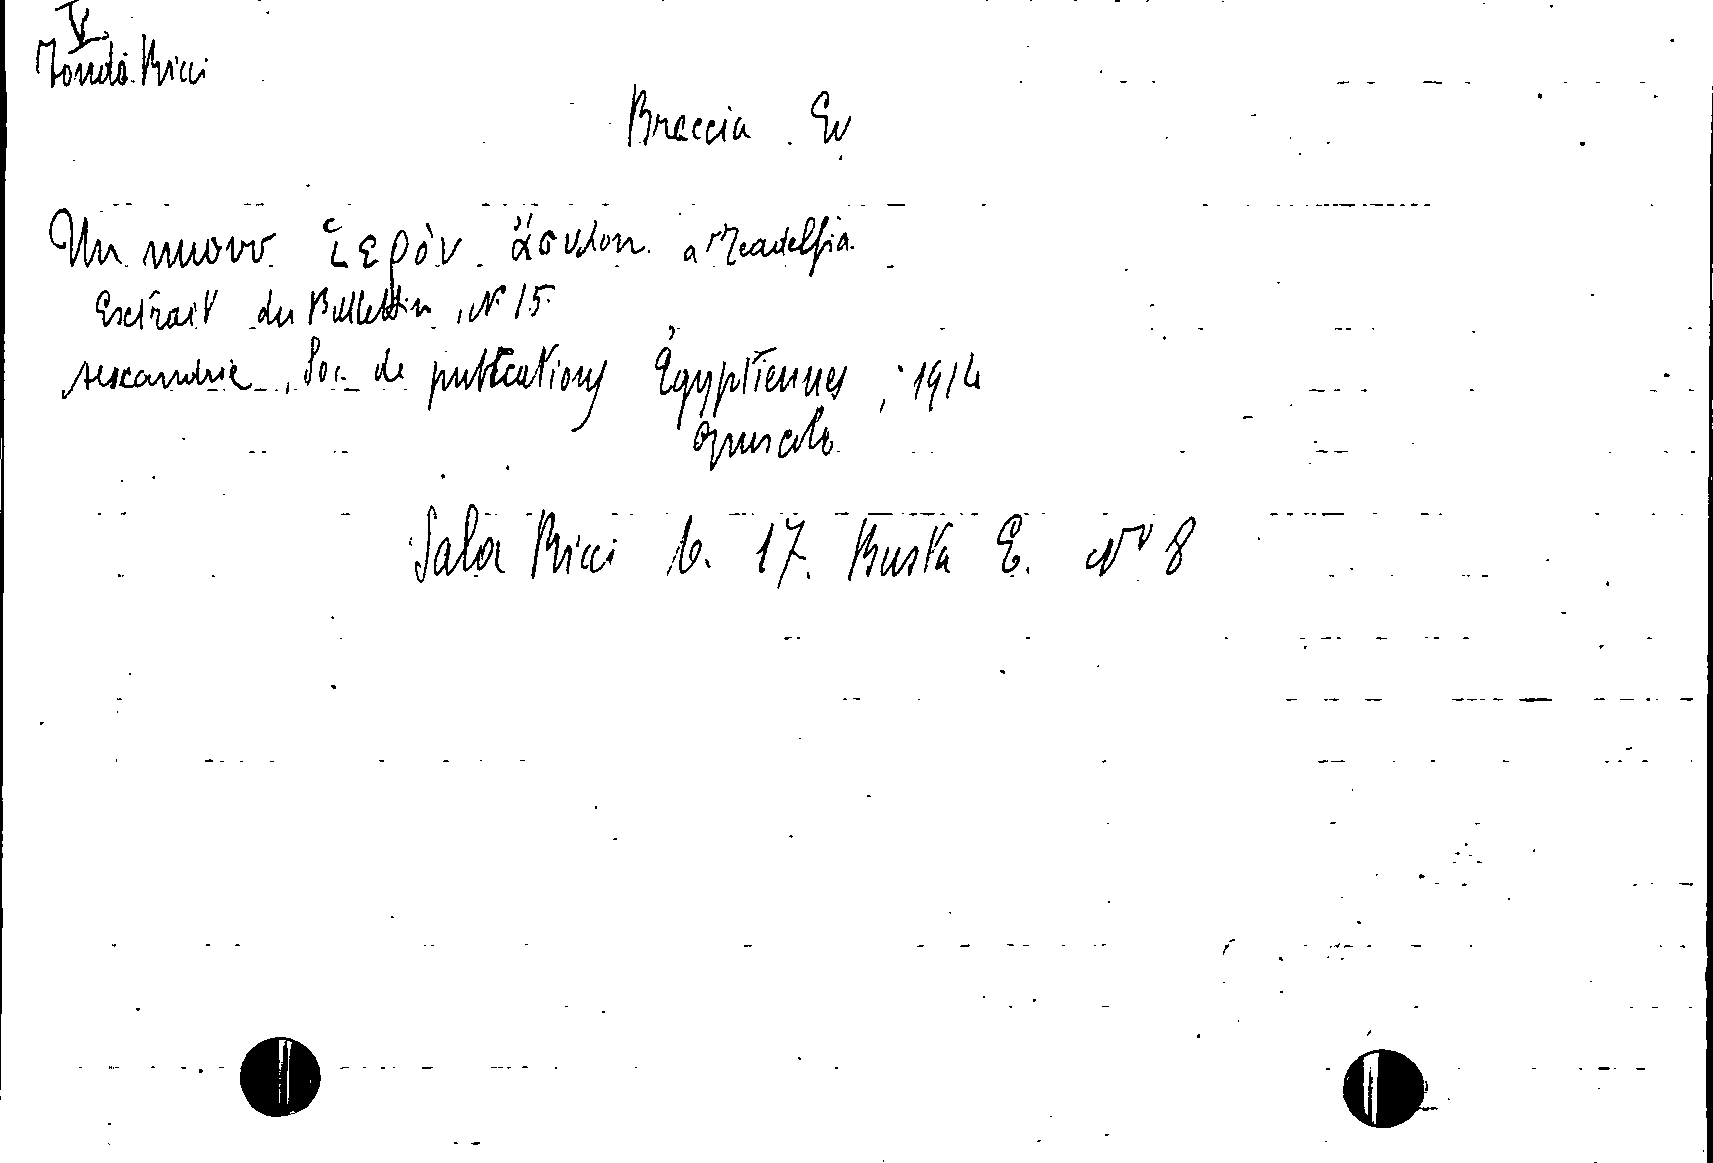 V
Fondo Ricci
Breccia Ev
Un nuovo ἱερὸν ἄσυλον a Teadelfia
Extrait du Bulletin, N. 15
Alexandrie, Soc. de publications Égyptiennes, 1914
opuscolo
Sala Ricci b. 17. Busta E. N° 8